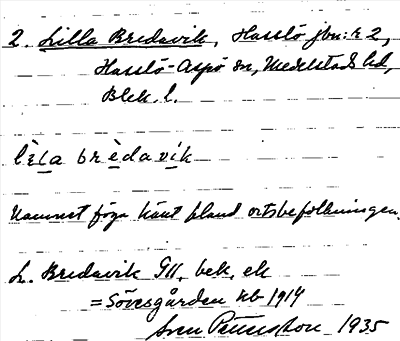 2. Lilla Bredavik, Hasslö jbn: r 2,
Hasslö-Aspö sn, Medelstads hd,
Blek. l.
lèla brèdavik
Namnet föga känt bland ortsbefolkningen.
L. Bredavik GII, bek, ek
= Sövesgården kb 1914
Sven 1935